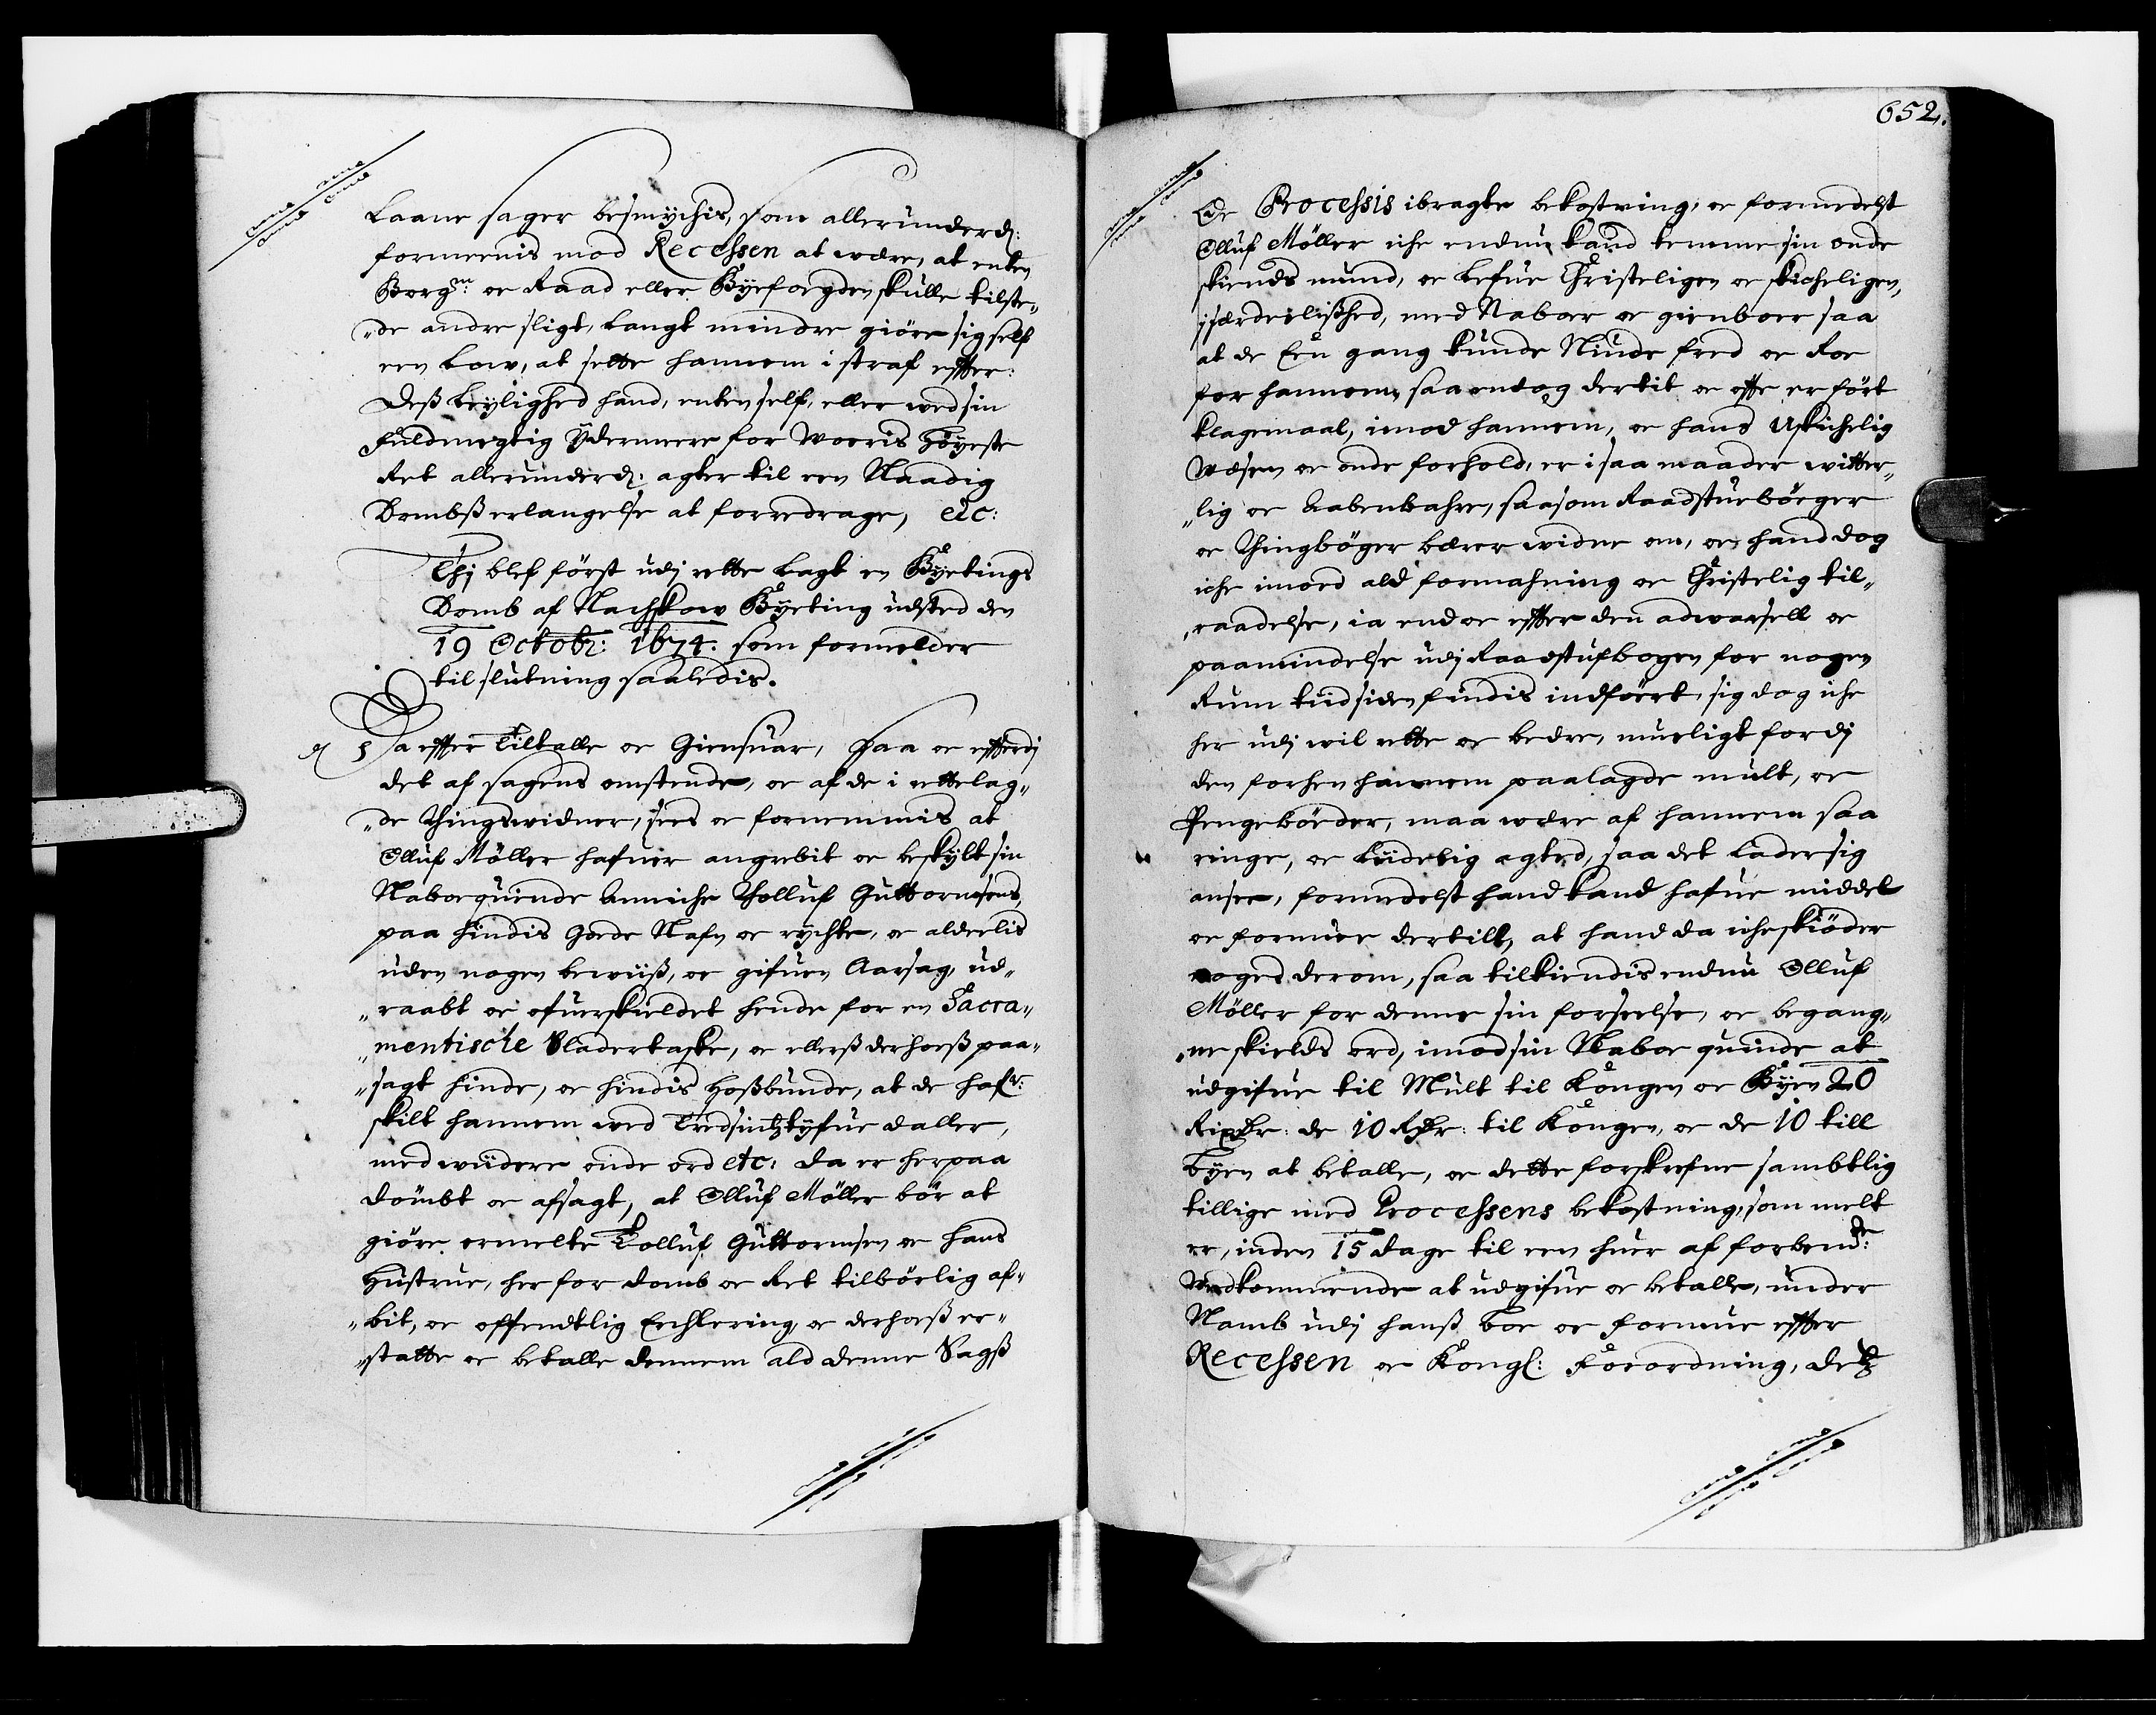 Laane sager besmychis, som allerunderd:
formeenis mod Recessen at were, at enten
Borgm: oc Raad eller Byefogden skulle tilste„
„de andre sligt, langt mindre giöre sig self
een Low, at sette hannem i straf effter:
Dess leylighed hand, enten self, eller wed sin
fuldmegtig ydermeere for Woris Höyeste
Ret allerunderd: agter til een Naadig
Dombss erlangelse at foredrage, etc:
Thj blef först udj rette lagt en Byetings
Domb af Nachskow Byeting udsted den
19 Octobr: 1674. som formelder
til slutning saaledis.
Da effter Tiltalle oc Giensuar, saa oc effterdj
det af sagens omstende, oc af de i rettelag„
„de Thingswidner, sees oc fornemmis at
Olluf Möller hafuer angrebit oc beskylt sin
Naboequinde Anniche Tolluf Guttormsens,
paa hindis Gode Nafn oc rychte, oc alderlis
uden nogen bewiiss, oc gifuen Aarsag, ud„
„raabt oc ofuerskieldet hende for en Sacra„
„mentische Bladertaske, oc ellerss derhoess paa„
„sagt hinde, oc hindis Hossbunde, at de hafr:
skilt hannem wed Tredsintztyfue daller,
med wiidere onde ord etc: da er herpaa
dömbt oc afsagt, at Olluf Möller bör at
giöre ermelte Tolluf Guttormsen oc hans
Hustrue, her for domb oc Ret tilbörlig af„
„bit, oc offendtlig Erchlering, oc derhoess er„
„statte oc betalle dennem ald denne Sagss
652.
Oc Processis ibragte bekostning, oc formedelst
Olluf Möller iche endnu kand temme sin onde
skiends mund, oc lefue Christeligen oc skicheligen,
iserdeelisshed, med Naboer oc gienboer saa
at de Een gang kunde Niude fred oc Roe
for hannem, saa endog dertit oc offte er fört
klagemaal, imod hannem, oc hans Uskichelig
Wesen oc onde forhold, er i saa maader witter„
„lig oc Aabenbahre, saasom Raadstuebörger
oc Thingböger bærer widne om, oc hand dog
iche imod ald formahning oc Christelig til„
„raadelse, ia end oc effter den adwarsell oc
paamindelse udj Raadstufbogen for nogen
Rum tiid siden findis indfört, sig dog iche
her udj wil rette oc bedre, mueligt fordj
den forhen hannem paalagde mult, oc
Pengebörder, maa were af hannem saa
ringe, oc liidelig agted, saa det lader sig
ansee, formedelst hand kand hafue middel
oc formue dertill, at hand da iche skiöder
noged derom, saa tilkiendis endnu Olluf
Möller for denne sin forseelse, oc begang„
„ne skields ord, imod sin Naboe quinde at
udgifue til Mult til Kongen oc Byen 20
Rixdr: de 10 Rdr: til Kongen, oc de 10 till
Byen at betalle, oc dette forskrefne sambtlig
tillige med Processens bekostning, som melt
er, inden 15 dage til een huer af forbente:
Wedkommende at udgifue oc betalle, under
Namb udj hanss boe oc formue effter
Recessen oc Kongl: Forordning, detz